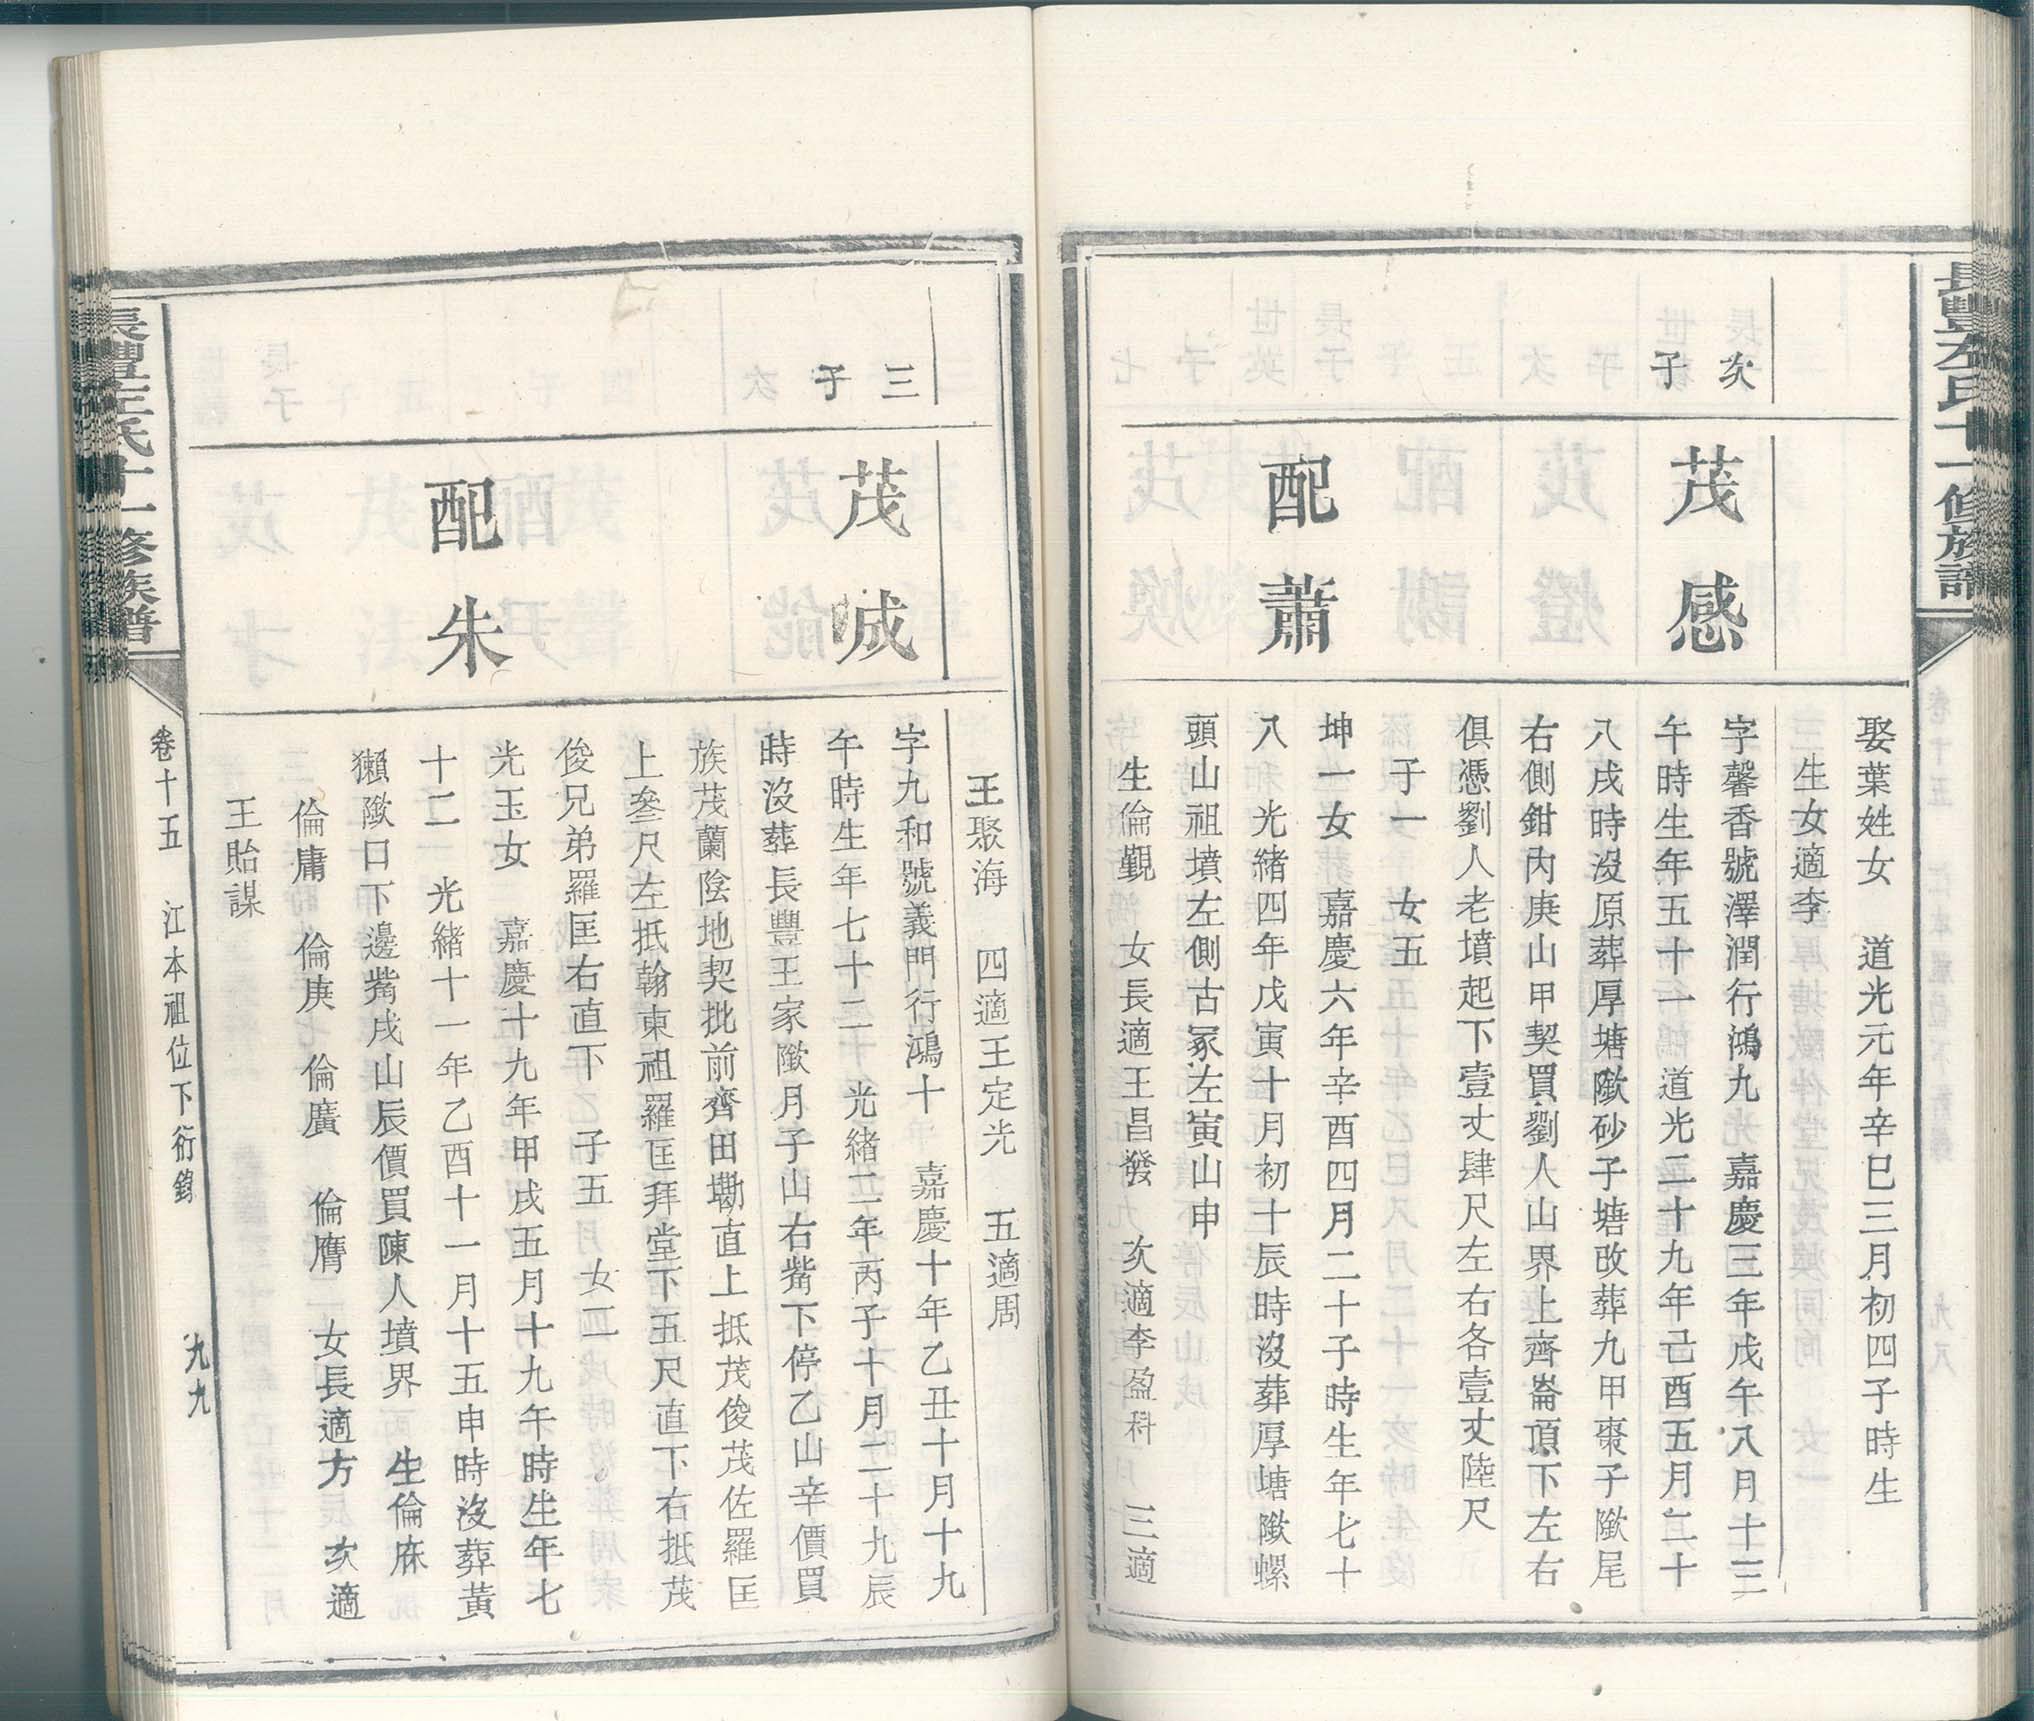 長豐左氏十一修族譜
娶葉姓女　道光元年辛巳三月初四子時生
生女適李
次子
茂感
字馨香號澤潤行鴻九　嘉慶三年戊午八月十三
午時生年五十一　道光二十九年己酉五月二十
八戌時沒原葬厚塘陂砂子塘改葬九甲棗子陂尾
右側鉗內庚山甲契買劉人山界上齊崙頂下左右
俱憑劉人老墳起下壹丈肆尺左右各壹丈陸尺
子一　女五
配蕭
坤一女　嘉慶六年辛酉四月二十子時生年七十
八　光緒四年戊寅十月初十辰時沒葬厚塘陂螺
頭山祖墳左側古冢左寅山申
生倫觀　女長適王昌發　次適李盈科　三適
王聚海　四適王定光　五適周
三子
茂成
字九和號義門行鴻十　嘉慶十年乙丑十月十九
午時生年七十二　光緒二年丙子十月二十九辰
時沒葬長豐王家陂月子山右嘴下停乙山辛價買
族茂蘭陰地契批前齊田墈直上抵茂俊茂佐羅匡
上叄尺左抵翰東祖羅匡拜堂下五尺直下右抵茂
俊兄弟羅匡右直下　子五　女二
配朱
光玉女　嘉慶十九年甲戌五月十九午時生年七
十二　光緒十一年乙酉十一月十五申時沒葬黃
獺陂口下邊嘴戌山辰價買陳人墳界　生倫庥
倫庸　倫庚　倫廣　倫膺　女長適方　次適
王貽謀
長豐左氏十一修族譜
卷十五　江本祖位下衍錡　九九